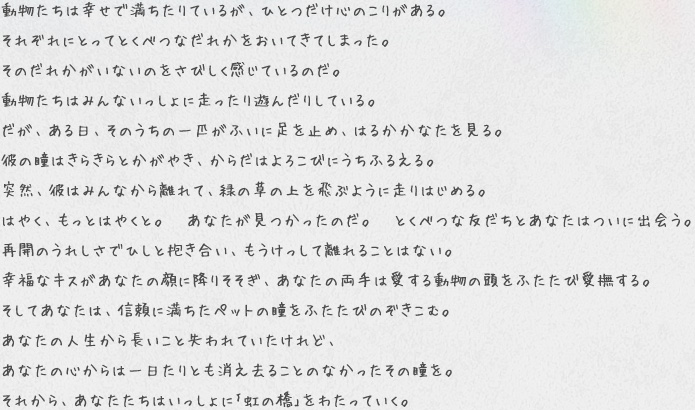 動物たちは幸せで満ちたりているが、ひとつだけ心のこりがある。
それぞれにとってとくべつなだれかをおいてきてしまった。
そのだれかがいないのをさびしく感じているのだ。
動物たちはみんないっしょに走ったり遊んだりしている。
だが、ある日、そのうちの一匹がふいに足を止め、はるかかなたを見る。
彼の瞳はきらきらとかがやき、からだはよろこびにうちふるえる。
突然、彼はみんなから離れて、緑の草の上を飛ぶように走りはじめる。
はやく、もっとはやくと。　あなたが見つかったのだ。　とくべつな友だちとあなたはついに出会う。
再開のうれしさでひしと抱き合い、もうけっして離れることはない。
幸福なキスがあなたの顔に降りそそぎ、あなたの両手は愛する動物の頭をふたたび愛撫する。
そしてあなたは、信頼に満ちたペットの瞳をふたたびのぞきこむ。
あなたの人生から長いこと失われていたけれど、
あなたの心からは一日たりとも消え去ることのなかったその瞳を。
それから、あなたたちはいっしょに「虹の橋」をわたっていく。